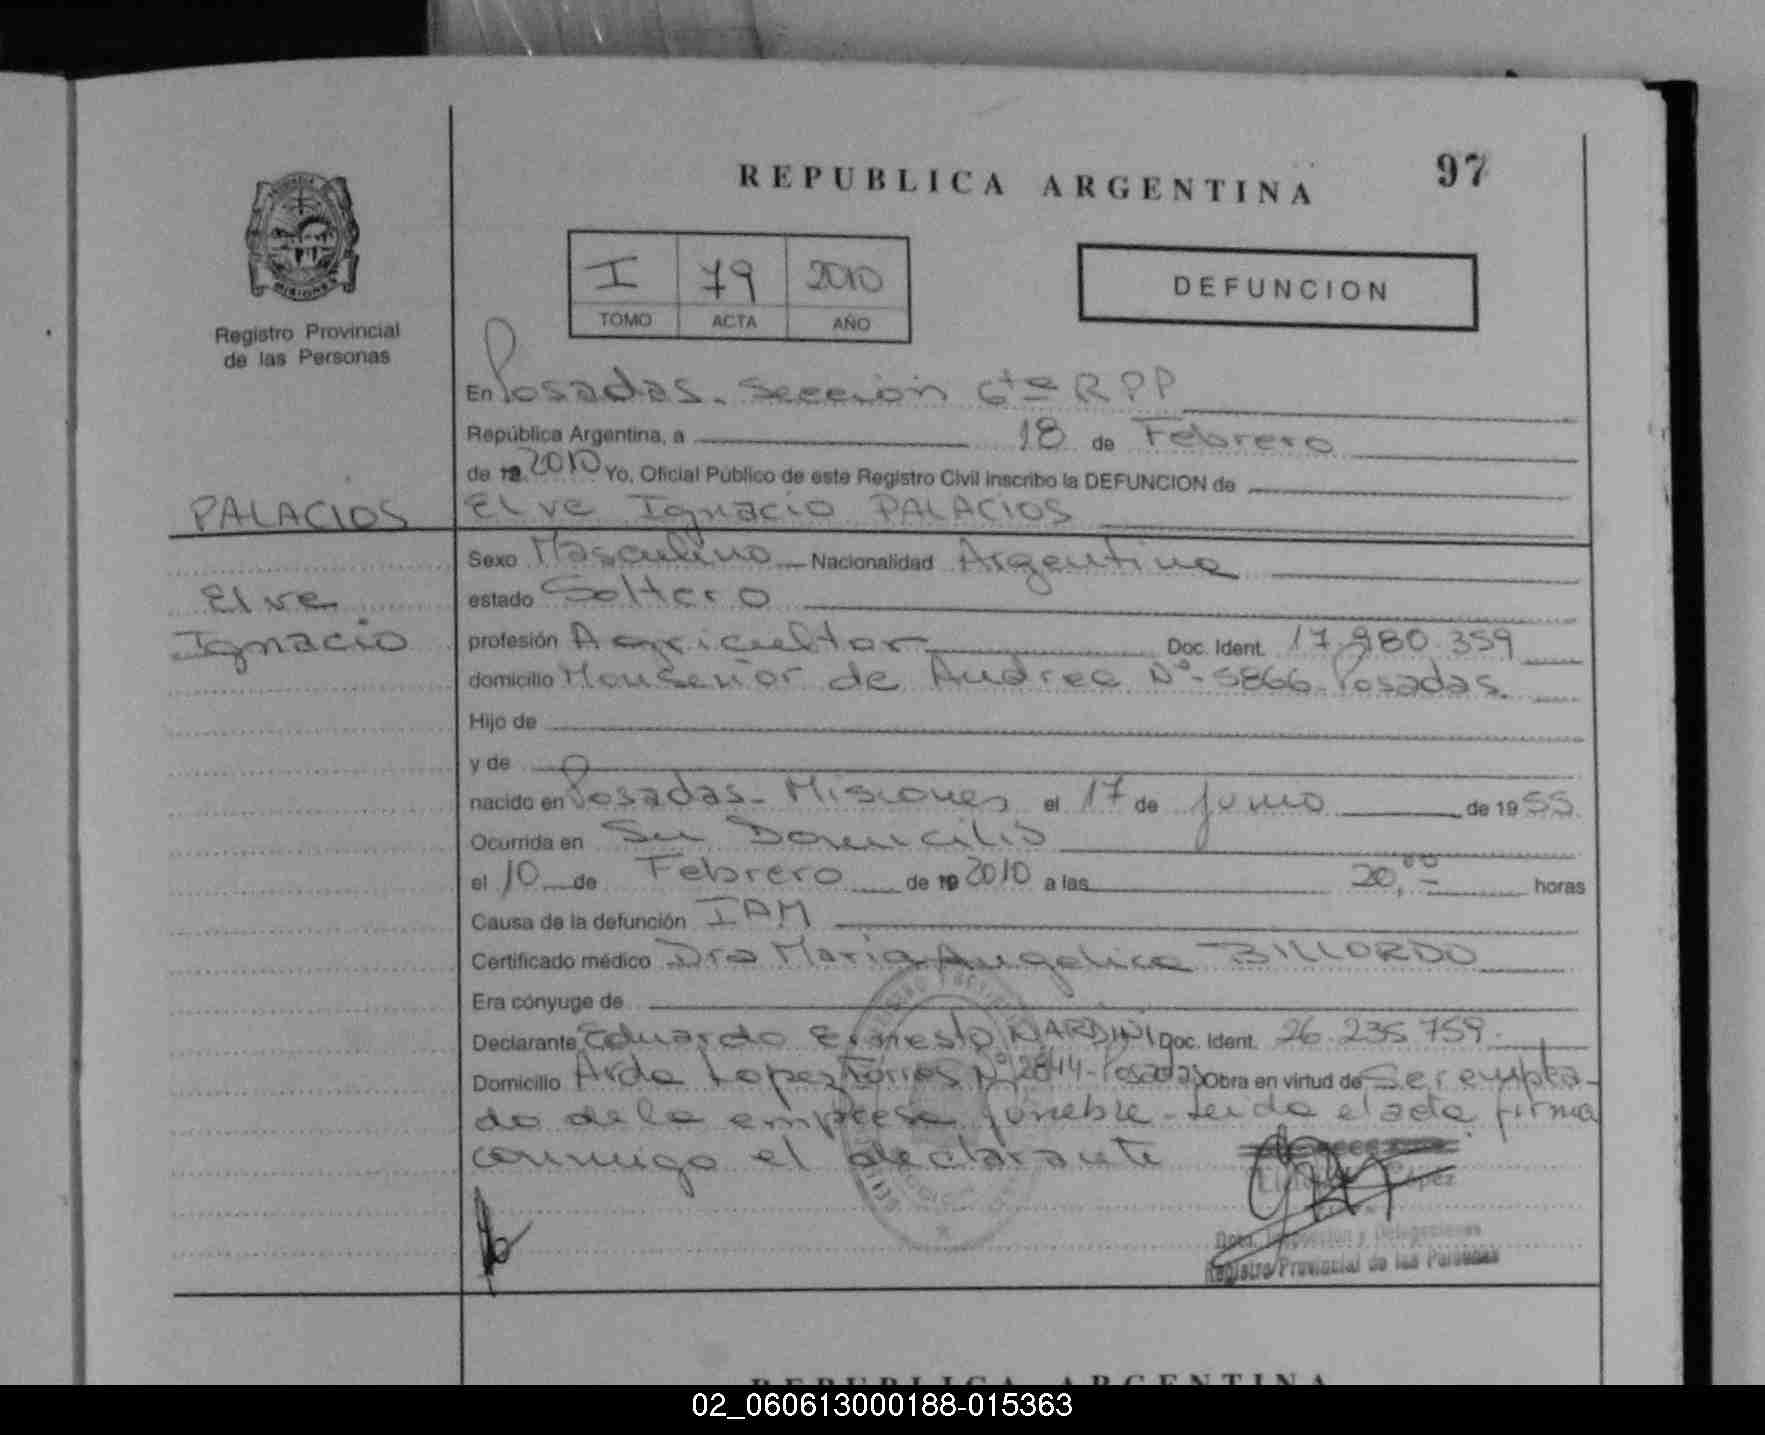 REPUBLICA ARGENTINA
97
MISIONES
Registro Provincial
de las Personas
I 79 2010
TOMO ACTA AÑO
DEFUNCION
En Posadas. Sección 6ta RPP
República Argentina, a 18 de Febrero
de 19 2010 Yo, Oficial Público de este Registro Civil inscribo la DEFUNCION de
PALACIOS
Elve Ignacio PALACIOS
Sexo Masculino Nacionalidad Argentina
Elve
estado Soltero
Ignacio
profesión Agricultor Doc. Ident. 17.980.359
domicilio Monseñor de Andrea Nº 5866 Posadas.
Hijo de
y de
nacido en Posadas - Misiones el 17 de junio de 19 55
Ocurrida en Su Domicilio
el 10 de Febrero de 19 2010 a las 20,00 horas
Causa de la defunción IAM
Certificado médico Dra Maria Angelica BILLORDO
Era cónyuge de
Declarante Eduardo Ernesto NARDINI Doc. Ident. 26.235.759.
Domicilio Arda Lopez Torres Nº 2844 - Posadas Obra en virtud de Ser emplea-
do de la empresa funebre - Leida el acta firma
conmigo el declarante
Dpto. Inspección y Delegaciones
Registro Provincial de las Personas
REPUBLICA ARGENTINA
02_060613000188-015363